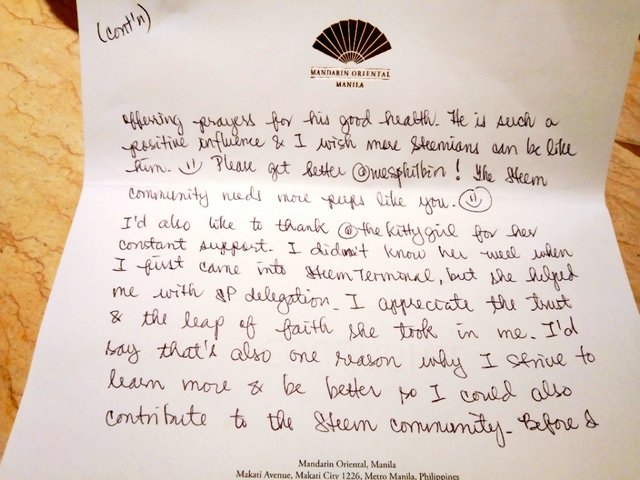 (cont'n)
MANDARIN ORIENTAL
MANILA
offering prayers for his good health. He is such a
positive influence & I wish more Steemians can be like
him. Please get better @wesphilbin! The Steem
community needs more peeps like you.
I'd also like to thank @thekittygirl for her
constant support. I didn't know her well when
I first came into SteemTerminal, but she helped
me with SP delegation. I appreciate the trust
& the leap of faith she took in me. I'd
say that's also one reason why I strive to
learn more & be better so I could also
contribute to the Steem community. Before I
Mandarin Oriental, Manila
Makati Avenue, Makati City 1226, Metro Manila, Philippines